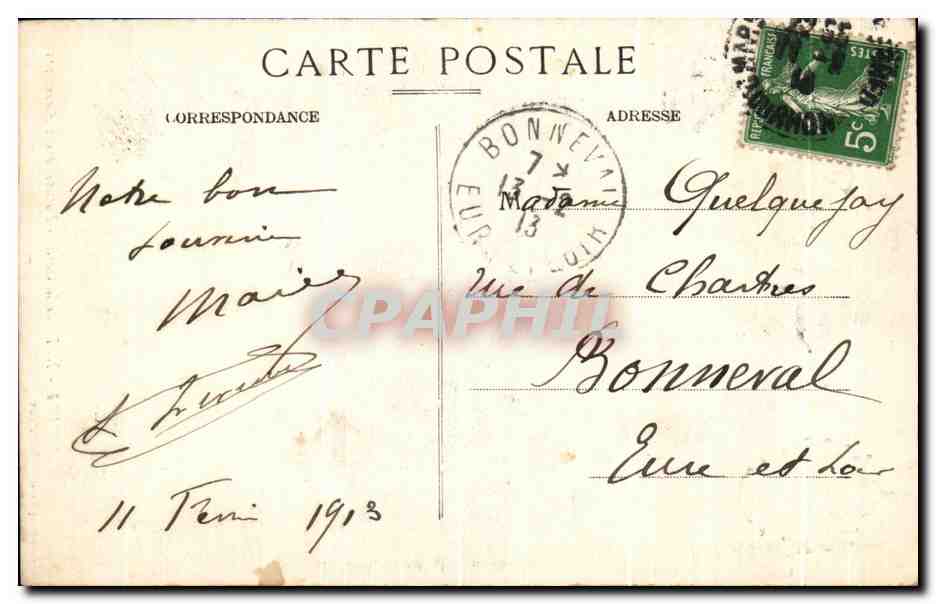 CARTE POSTALE
CORRESPONDANCE
ADRESSE
Notre bon
souvenir
Marie
11 Février 1913
BONNEVAL
7
13 2
13
EURE
LOIR
Madame Quelquejay
rue de Chartres
Bonneval
Eure et Loir
5c
POSTES
FRANÇAISE
CPAPHIL